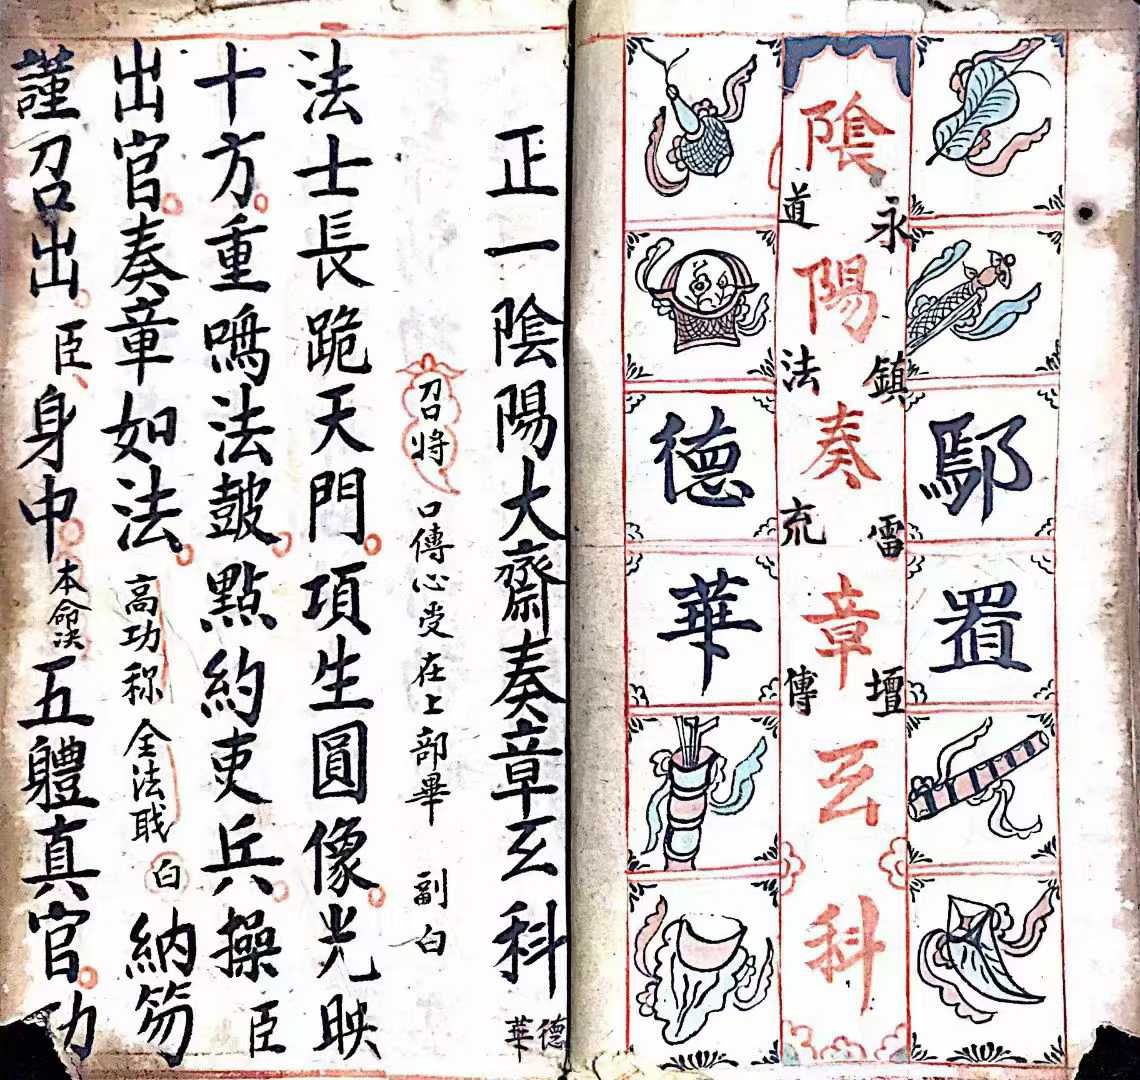 鄢置
永鎮雷壇
隂陽奏章玄科
道法充傳
德華
正一隂陽大齋奏章玄科
德華
召将 口傳心受在上部畢 副白
法士長跪天門項生圓像光映
十方重鳴法皷點約吏兵操臣
出官奏章如法高功称全法职白納笏
謹召出臣身中本命决五體真官功